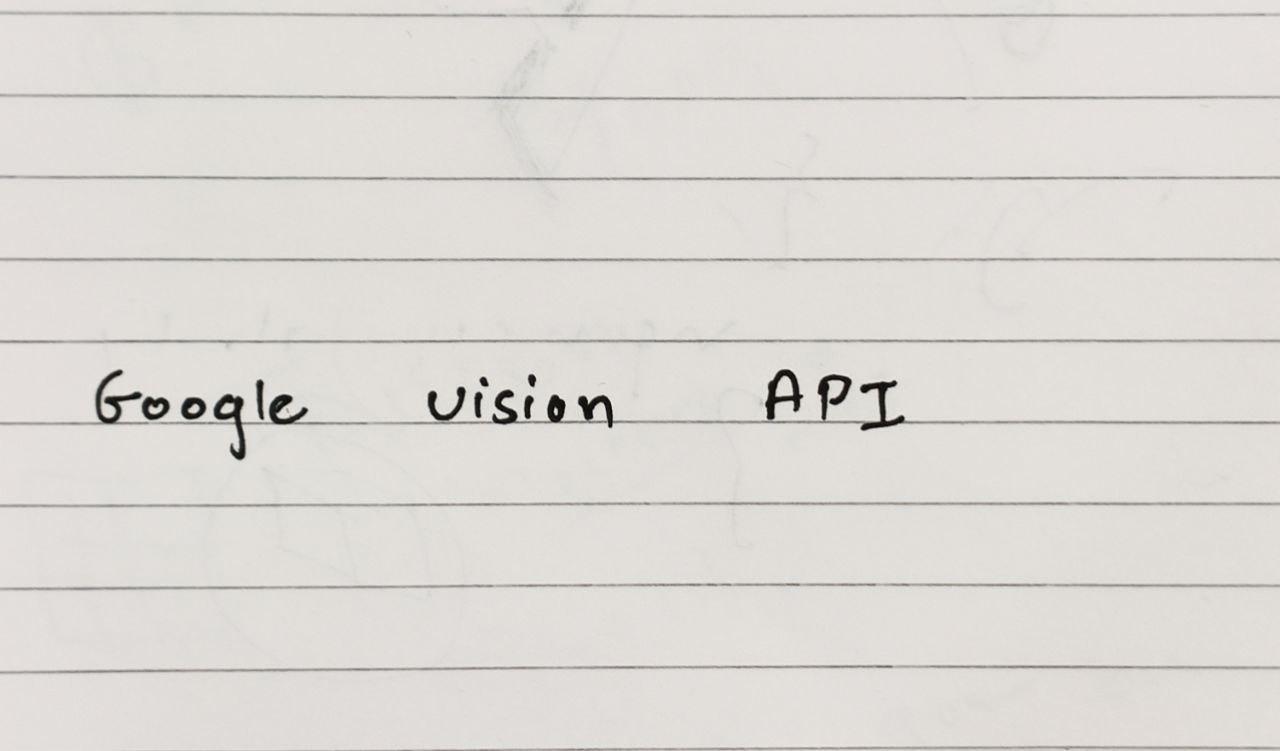 Google vision API